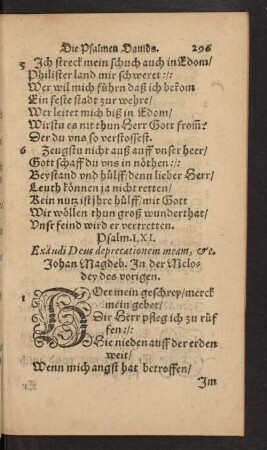 Die Psalmen Dauids. 296
5 Ich streck mein schuch auch in Edom/
Philister land mir schweret :/:
Wer wil mich führn daß ich bekom
Ein feste stadt zur wehre/
Wer leitet mich biß in Edom/
Wirstu es nit thun Herr Gott from?
Der du vns so verstossest.
6 Zeugstu nicht auß auff vnser heer/
Gott schaff du vns in nöthen :/:
Beystand vnd hülff/ denn lieber Herr/
Leuth können ja nicht retten/
Kein nutz ist jhre hülff/ mit Gott
Wir wöllen thun groß wunderthat/
Vnsr feind wird er vertretten.
Psalm. LXI.
Exaudi Deus deprecationem meam, &c.
Johan Magdeb. In der Melo-
dey des vorigen.
1 HOer mein geschrey/ merck
mein gebet/
Dir Herr pfleg ich zu rüf
fen :/:
Hie nieden auff der erden
weit/
Wenn mich angst hat betroffen/
Im